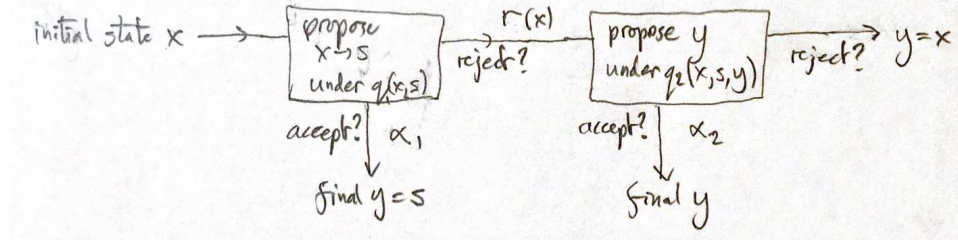 initial state x
propose
x→s
under q₁(x,s)
r(x)
reject?
propose y
under q₂(x,s,y)
reject?
y=x
accept? α₁
final y=s
accept? α₂
final y